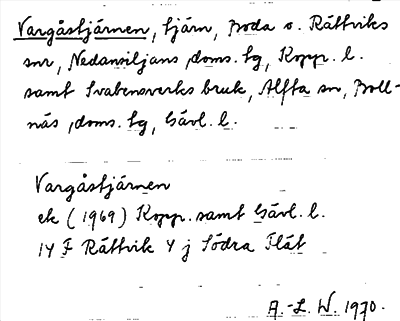 Vargåstjärnen, tjärn, Boda o. Rättviks
snr, Nedansiljans doms. hg, Kopp. l.
samt Svabensverks bruk, Alfta sn, Boll-
näs, doms. hg, Gävl. l.
Vargåstjärnen
ek (1969) Kopp. samt Gävl. l.
14 F Rättvik 4 j Södra Flät
A.-L. W. 1970.